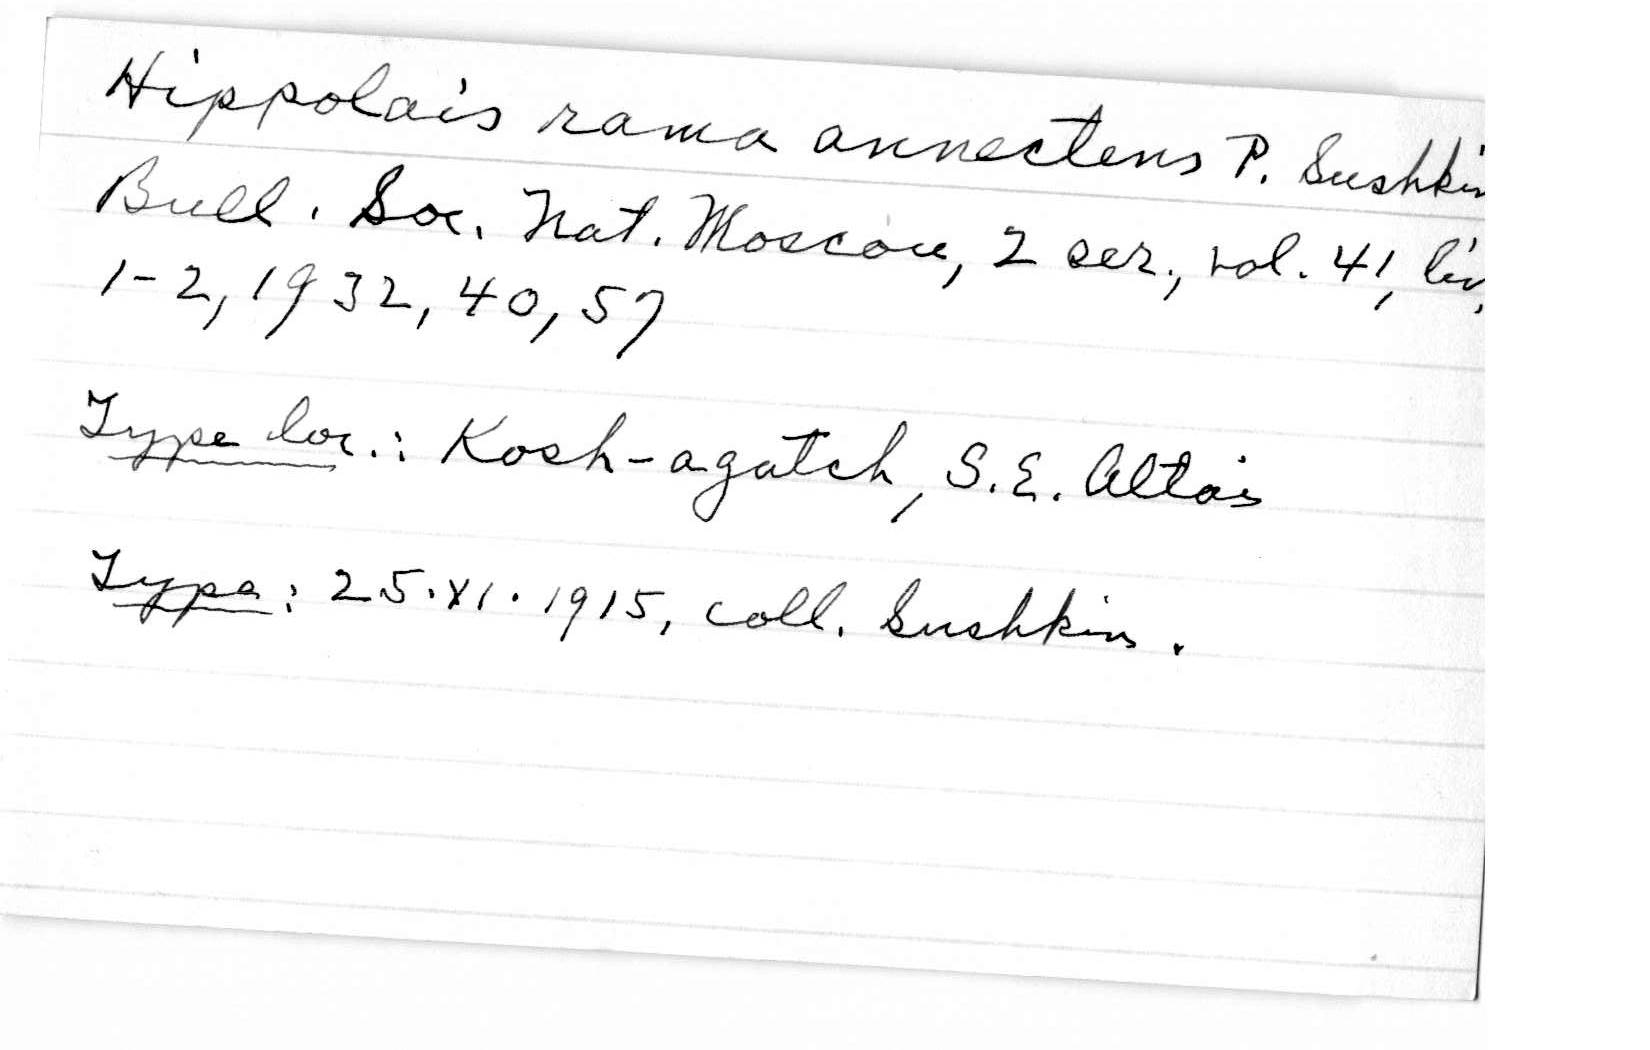 Hippolais rama annectens P. Sushkin
Bull. Soc. Nat. Moscou, 2 ser., vol. 41, liv,
1-2, 1932, 40, 57
Type loc.: Kosh-agatch, S.E. Altais
Type: 25.XI.1915, coll. Sushkin.